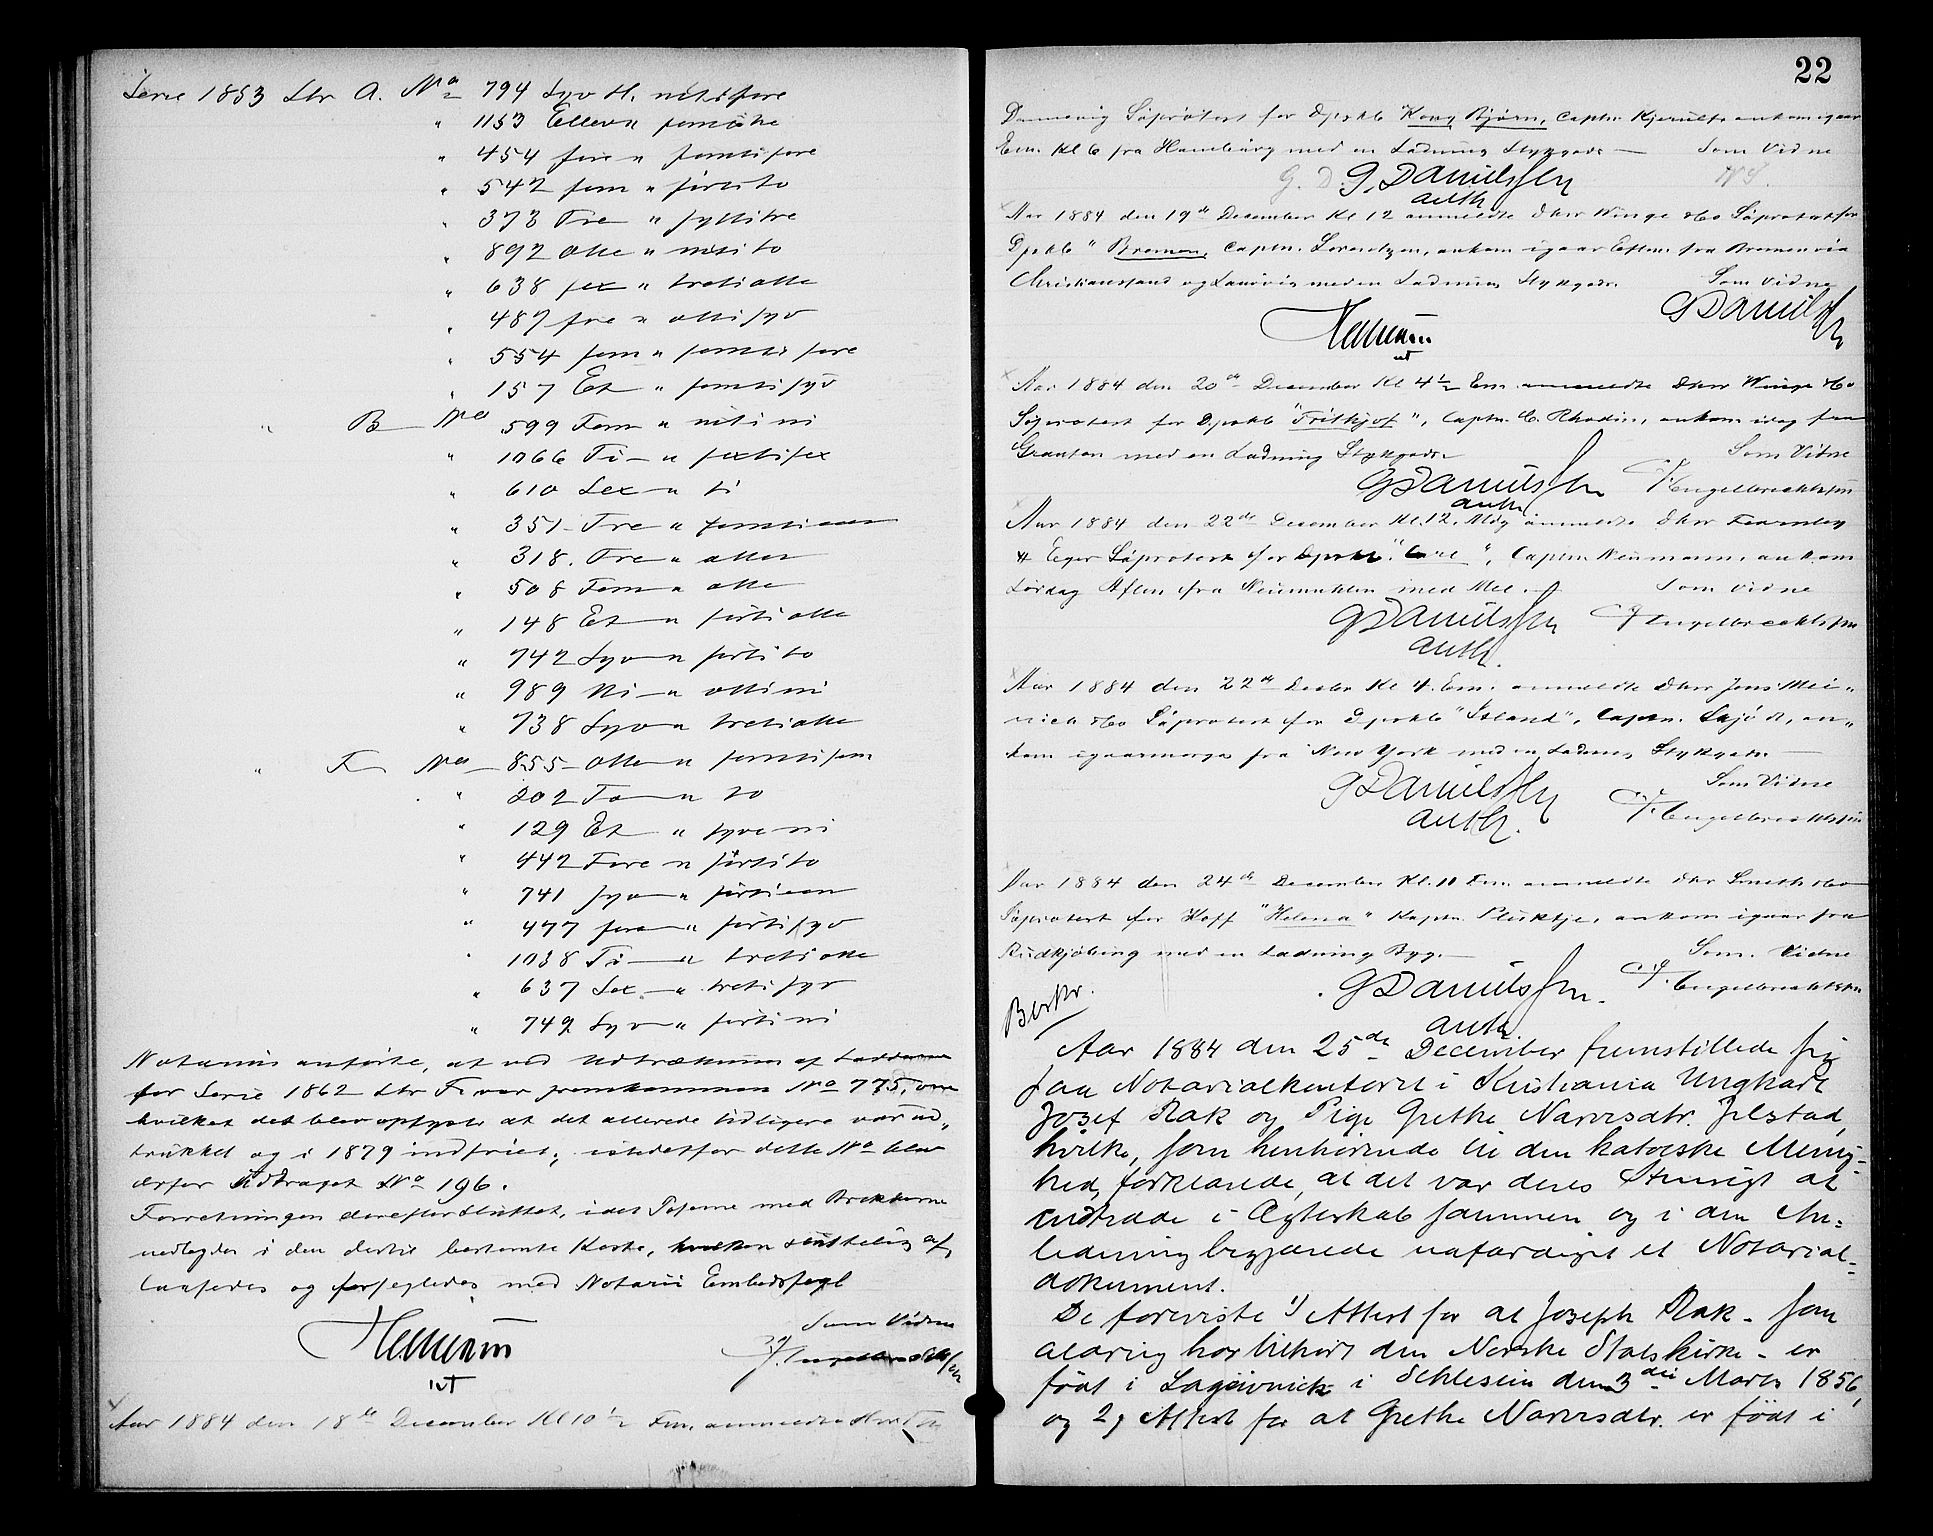 Serie 1853 Ltr A. No 794 Syv H. nitifire
" 1153 Elleve " femtitre
" 454 fire " femtifire
" 542 fem " førtito
" 373 Tre " syttitre
" 892 Otte " nitito
" 638 sex " trettiotte
" 487 fire " ottisyv
" 554 fem " femtifire
" 157 Et " femtisyv
" B No 599 Fem " nitini
" 1066 Ti " sextisex
" 610 Sex " ti
" 351 Tre " femtieen
" 318. Tre " atten
" 508 Fem " otte
" 148 Et " førtiotte
" 742 Syv " førtito
" 989 Ni " ottini
" 738 Syv " trettiotte
" F No 855 Otte " femtifem
" 202 To " to
" 129 Et " tyveni
" 442 Fire " førtito
" 741 syv " førtieen
" 477 fire " søttisyv
" 1038 Ti " trettiotte
" 637 Sex " trettisyv
" 749 Syv " førtini
Notarius anførte, at ved Udtrækningen af Lodderne
for Serie 1862 Ltr F. var fremkommen No 775, om
hvilket det blev oplyst at det allerede tidligere var ud„
trukket og i 1879 indfriet; istedetfor dette No blev
derfor Udtraget No 196.
Forretningen derefter sluttet, idet Poserne med Brikkerne
nedlagdes i den dertil bestemte Kasse, hvilken sluttelig af„
laasedes og forsegledes med Notarii Embedssegl
Som Vidne
Aar 1884 den 18de December Kl 10½ Fm. anmeldte
22
Dannevig Søprotest for Dpskb "Kong Bjørn," Captn. Kjerulf ankom igaar
Em. Kl 6 fra Hamburg med en Ladning Stykgods — Som Vidne
G. D. G. Daniels sen
auth
Aar 1884 den 19de December Kl 12 anmeldte Dhrr Winge & Co Søprotest for
Dpskb "Bremen, Captn. Lorentzen, ankom igaar Efterm. fra Bremen via
Christianssand og Laurvig med en Ladning Stykgods. Som Vidne
G Daniels sen
Aar 1884 den 20de December Kl 4½ Em. anmeldte Dhrr Winge & Co
Søprotest for Dpskb "Frithjof", Captn. C. Rhodin, ankom idag fra
Granton med en Ladning Stykgods. Som Vidne
G Daniels sen J. Engelbrechtsen
auth
Aar 1884 den 22de December Kl. 12. Mdg anmeldte Dhrr Fearnley
& Eger Søprotest for Dpskb. "Carl", Captn. Neumann, ankom
Lørdag Aften fra Neumühlen med Mel. Som Vidne
G Daniels sen J. Engelbrechtsen
auth.
Aar 1884 den 22de Decbr Kl 4. Em. anmeldte Dhrr Jens Mei„
nich & Co Søprotest for Dpskb "Island", Captn. Skjødt, an„
kom igaarmorges fra New York med en Ladning Stykgods —
Som Vidne
G Daniels sen J. Engelbrechtsen
auth.
Aar 1884 den 24de December Kl. 10 Fm. anmeldte Dhr Smith & Co
Søprotest for Koff "Helena" Kaptn. Pluktje, ankom igaar fra
Rudkjøbing med en Ladning Byg. — Som. Vidne
G Daniels sen. J. Engelbrechtsen
auth
Aar 1884 den 25de December fremstillede sig
paa Notarialkontoret i Kristiania Ungkarl
Josef Rak og Pige Grethe Narvesdtr. Jelstad,
hvilke, som henhørende til den katolske Menig=
hed, forklarede, at det var deres Hensigt at
indtræde i Ægteskab sammen og i den An=
ledning begjærede udfærdiget et Notarial=
dokument.
De foreviste 1) Attest for at Joseph Rak - som
aldrig har tilhørt den Norske Statskirke - er
født i Lagiewnick i Schlesien den 3die Marts 1856,
og 2) Attest for at Grethe Narvesdtr. er født i